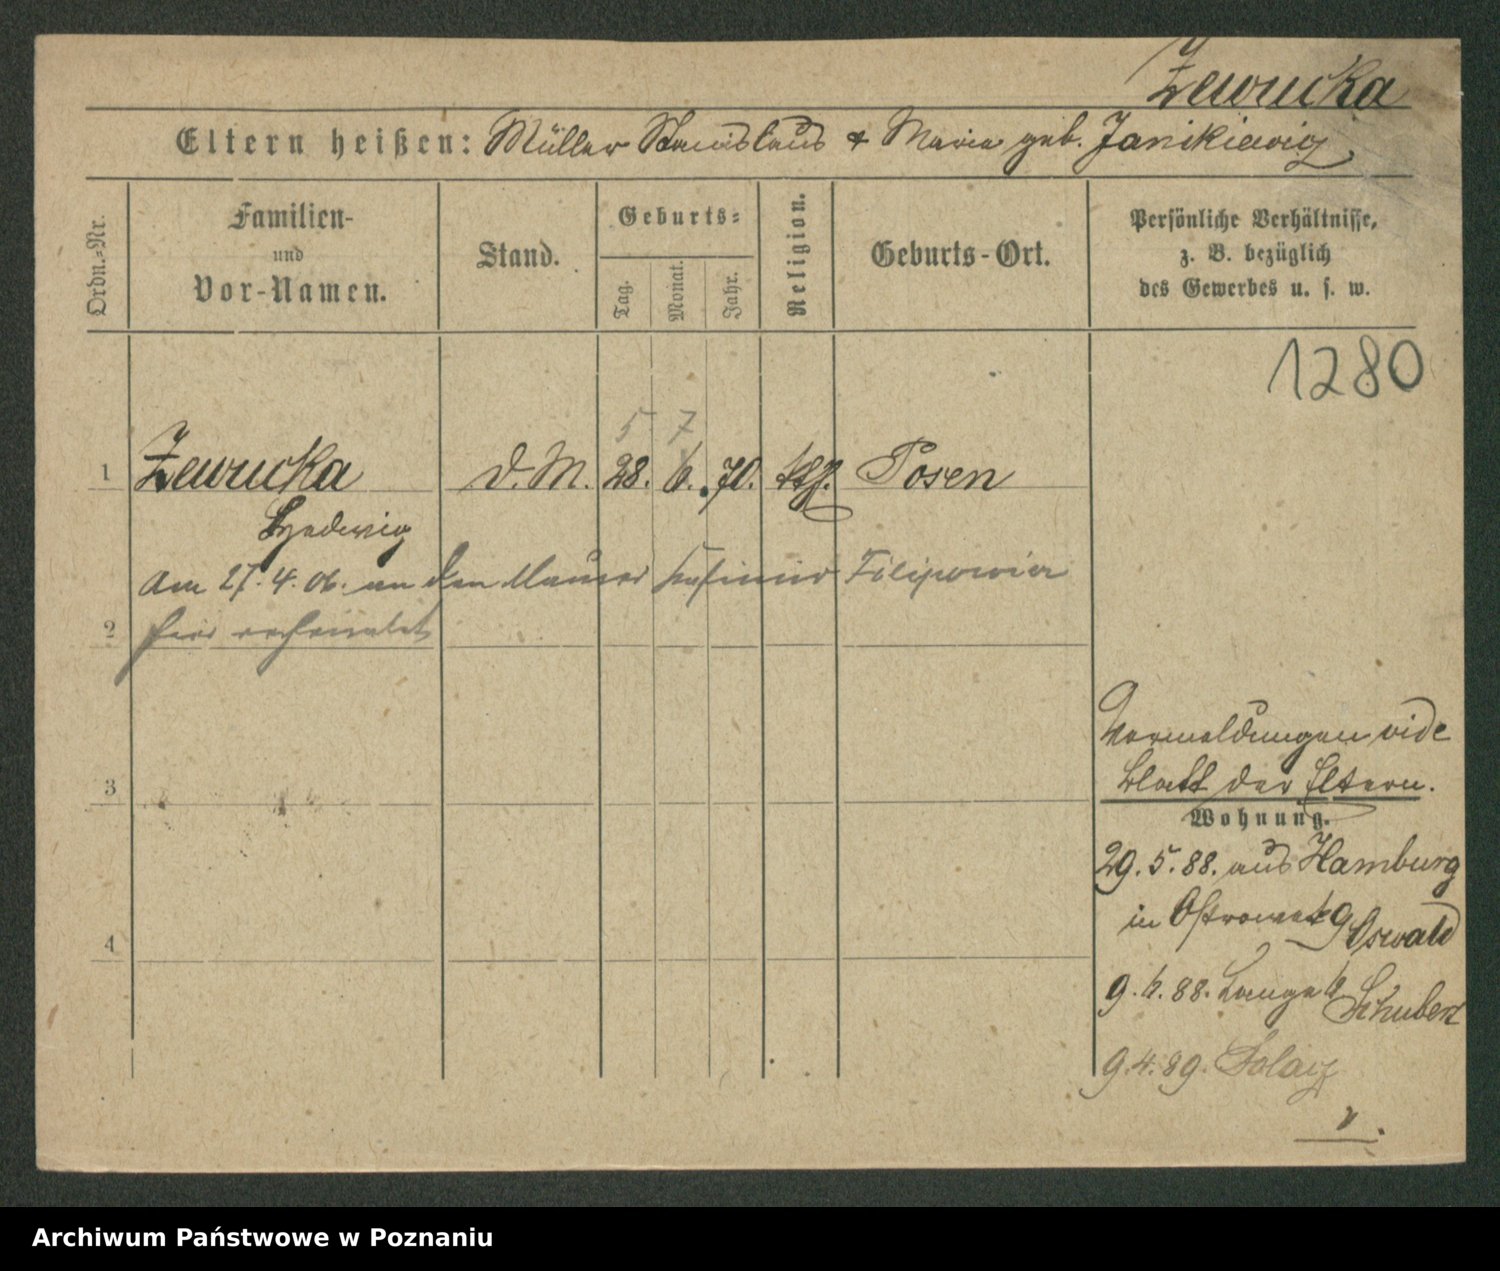 Zewucka
Eltern heißen: Müller Stanislaus + Maria geb. Janikiewicz
Ordn.-Nr.
Familien-
und
Vor-Namen.
Stand.
Geburts-
Tag.
Monat.
Jahr.
Religion.
Geburts-Ort.
Persönliche Verhältnisse,
z. B. bezüglich
des Gewerbes u. s. w.
1280
5 7
1 Zewucka D. M. 28. 6. 70. kth. Posen
Hedwig
Am 27. 4. 06. an den Maurer Kasimir Filipowicz
2 hier verheiratet
Vormeldungen vide
Blatt der Eltern.
3
Wohnung.
29. 5. 88. aus Hamburg
in Ostrowek 9 Oswald
4
9. 6. 88. Lange Schubert
9. 4. 89. Solacz